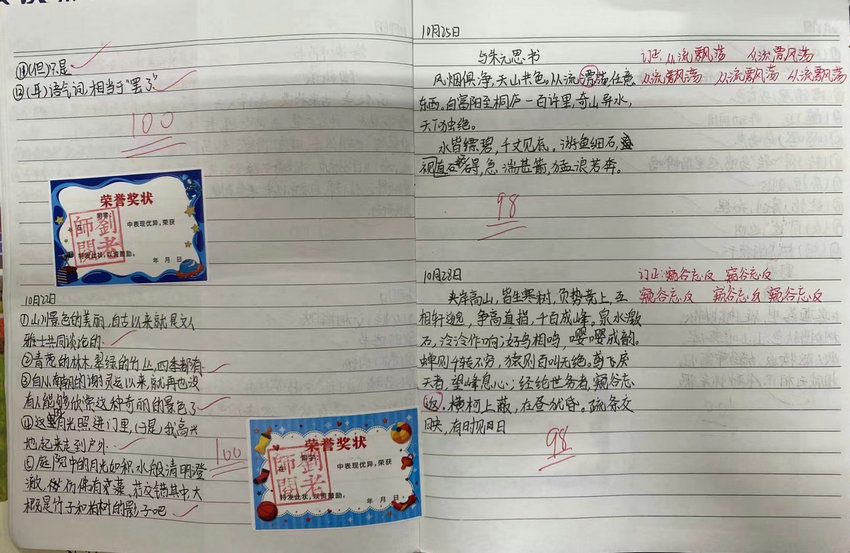 ⑪(但)只是
⑫(耳)语气词,相当于"罢了"
100
荣誉奖状
中表现优异,荣获
特发此状,以资鼓励。
年 月 日
劉老師閱
10月22日
①山川景色的美丽,自古以来就是文人
雅士共同谈论的.
②青葱的林木翠绿的竹丛,四季都有
③自从南朝的谢灵运以来,就再也没
有人能够欣赏这种奇丽的景色了
④这时月光照进门里,(于是)我高兴
地起来走到户外.
⑤庭院中的月光如积水般清明澄
澈,
大
概是竹子和柏树的影子吧
100
荣誉奖状
中表现优异,荣获
特发此状,以资鼓励。
年 月 日
劉老師閱
10月25日
与朱元思书
风烟俱净,天山共色。从流飘荡任意
东西。自富阳至桐庐一百许里,奇山异水,
天下独绝。
水皆缥碧,千丈见底。游鱼细石,
视直无碍,急湍甚箭,猛浪若奔。
订正:从流飘荡 从流飘荡
从流飘荡 从流飘荡 从流飘荡
98
10月28日
夹岸高山,皆生寒树,负势竞上,互
相轩邈,争高直指,千百成峰。泉水激
石,泠泠作响;好鸟相鸣,嘤嘤成韵。
蝉则千转不穷,猿则百叫无绝。鸢飞戾
天者,望峰息心;经纶世务者,窥谷忘
返。横柯上蔽,在昼犹昏。疏条交
映,有时见日
订正:窥谷忘反 窥谷忘反
窥谷忘反 窥谷忘反 窥谷忘反
98